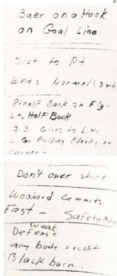 Baer on a Hook
on Goal Line
Slot to Rt
Ends Normal (3rd
Pinoff Back on Fly-
Lt. Half Back
B.B. Goes to L.
L.G. Pulling Alerts to
Corner
Don't over shift
Woodard Commits
Fast - Safety
Weak
Defense
any body except
Blackburn